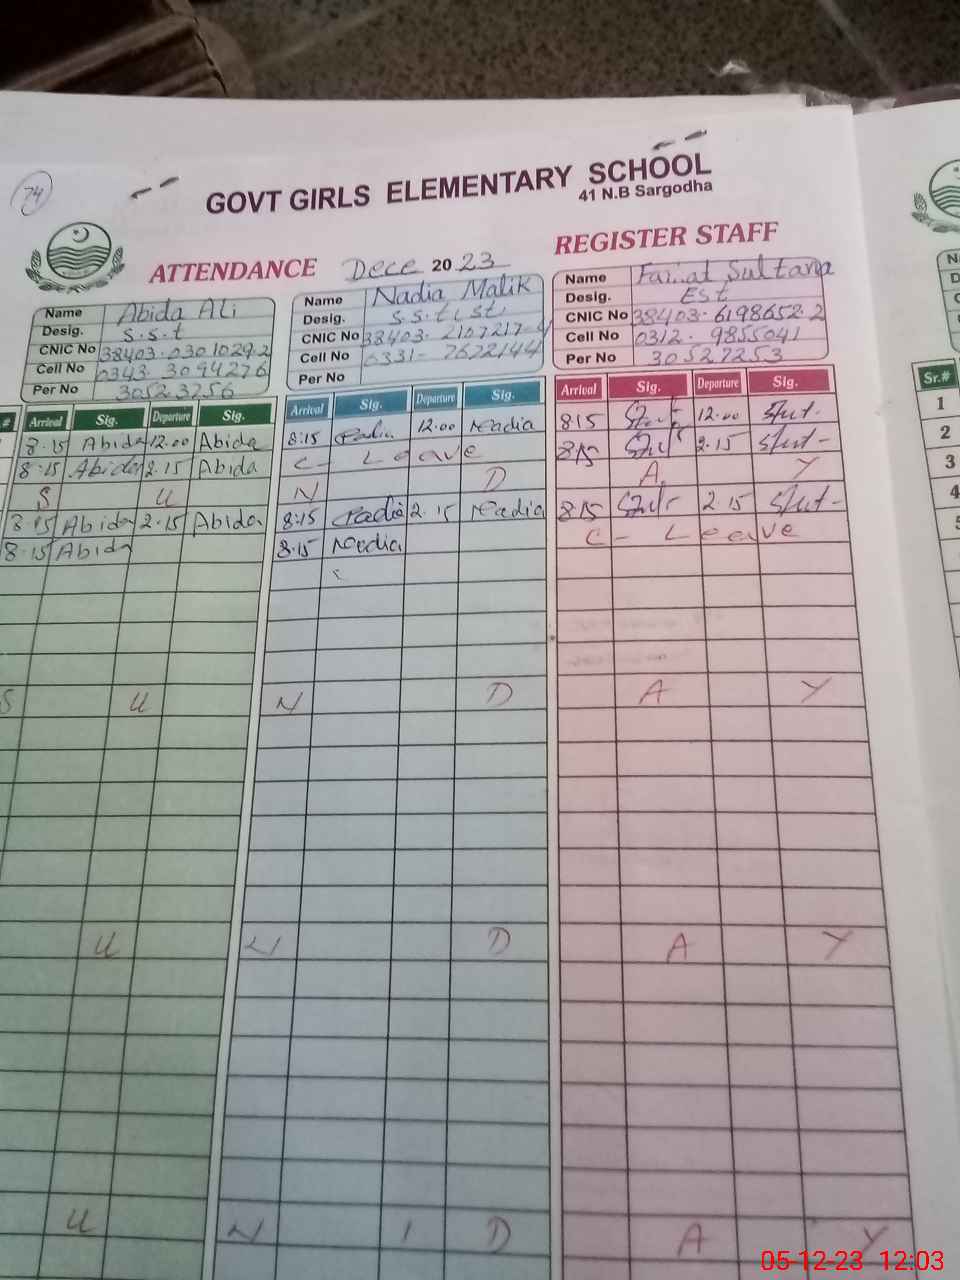 74
GOVT GIRLS ELEMENTARY SCHOOL
41 N.B Sargodha
ATTENDANCE Dece 2023 REGISTER STAFF
Name Abida Ali
Desig. S.S.t
CNIC No 38403-0301029-2
Cell No 0343 3094276
Per No 30523256
Name Nadia Malik
Desig.
CNIC No 38403-2107217-
Cell No 0331-
Per No
Name Sultana
Desig. Est
CNIC No 38403-6198652-2
Cell No 0312-9855041
Per No 30527253
# Arrival Sig. Departure Sig.
8:15 Abida 12:00 Abida
8:15 Abida 2:15 Abida
S U
8:15 Abida 2:15 Abida
8:15 Abida
S U
U
U
Arrival Sig. Departure Sig.
8:15 Nadia 12:00 Nadia
C- Leave
N D
8:15 Nadia 2:15 Nadia
8:15 Nadia
N D
N D
N D
Arrival Sig. Departure Sig.
8:15 12:00
8:15 2:15
A Y
8:15 2:15
C- Leave
A Y
A Y
A Y
Sr.#
1
2
3
4
5
05-12-23 12:03